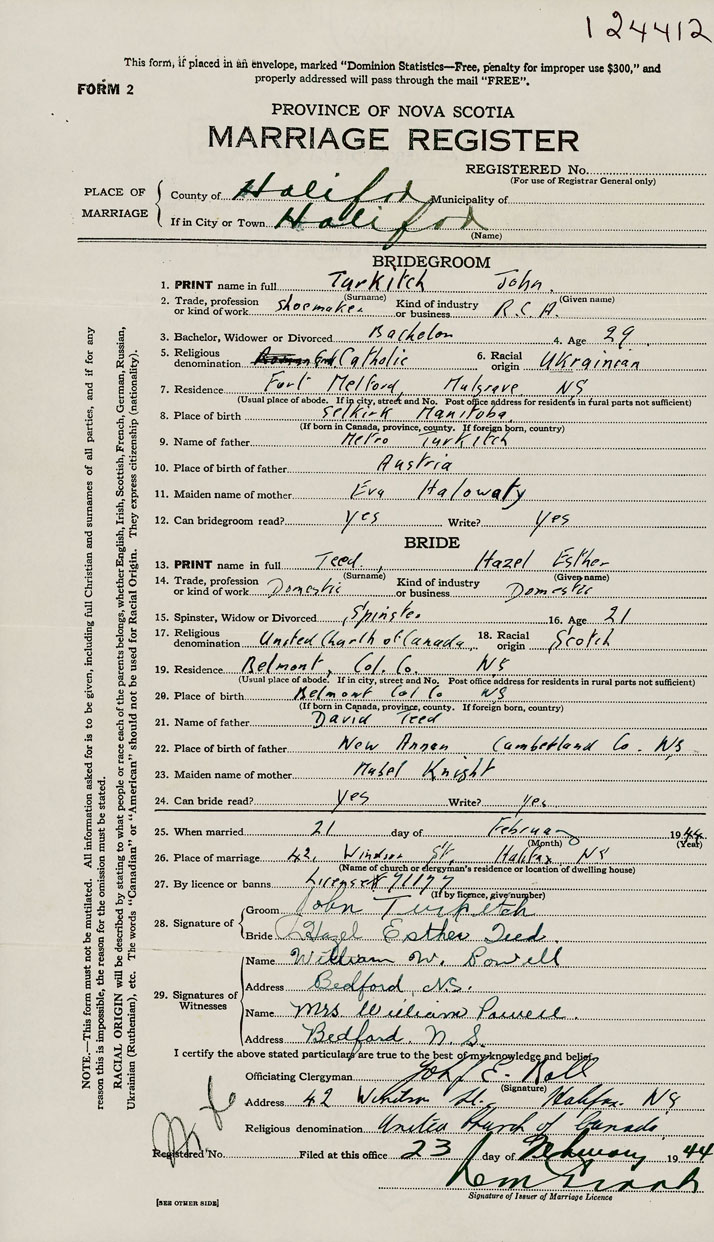 124412
This form, if placed in an envelope, marked "Dominion Statistics—Free, penalty for improper use $300," and
properly addressed will pass through the mail "FREE".
FORM 2
PROVINCE OF NOVA SCOTIA
MARRIAGE REGISTER
REGISTERED No.
(For use of Registrar General only)
PLACE OF MARRIAGE
County of Halifax Municipality of
If in City or Town Halifax
(Name)
BRIDEGROOM
1. PRINT name in full Turkitch John
(Surname) (Given name)
2. Trade, profession or kind of work Shoemaker Kind of industry or business R.C.A.
3. Bachelor, Widower or Divorced Bachelor 4. Age 29
5. Religious denomination Catholic 6. Racial origin Ukrainian
7. Residence Fort Melford, Mulgrave, NS
(Usual place of abode. If in city, street and No. Post office address for residents in rural parts not sufficient)
8. Place of birth Selkirk Manitoba
(If born in Canada, province, county. If foreign born, country)
9. Name of father Metro Turkitch
10. Place of birth of father Austria
11. Maiden name of mother Eva Halowaty
12. Can bridegroom read? yes Write? yes
BRIDE
13. PRINT name in full Teed, Hazel Esther
(Surname) (Given name)
14. Trade, profession or kind of work Domestic Kind of industry or business Domestic
15. Spinster, Widow or Divorced Spinster 16. Age 21
17. Religious denomination United Church of Canada 18. Racial origin Scotch
19. Residence Belmont, Col. Co. NS
(Usual place of abode. If in city, street and No. Post office address for residents in rural parts not sufficient)
20. Place of birth Belmont Col Co NS
(If born in Canada, province, county. If foreign born, country)
21. Name of father David Teed
22. Place of birth of father New Annan Cumberland Co. NS
23. Maiden name of mother Mabel Knight
24. Can bride read? yes Write? yes
25. When married 21 day of February 1944
(Month) (Year)
26. Place of marriage 42, Windsor St, Halifax NS
(Name of church or clergyman's residence or location of dwelling house)
27. By licence or banns License# 91177
(If by licence, give number)
28. Signature of
Groom John Turkitch
Bride Hazel Esther Teed
29. Signatures of Witnesses
Name William W. Powell
Address Bedford, NS.
Name Mrs William Powell.
Address Bedford. N.S.
I certify the above stated particulars are true to the best of my knowledge and belief.
Officiating Clergyman E.
(Signature)
Address 42 Windsor St. Halifax. NS
Religious denomination United Church of Canada
Registered No. Filed at this office 23 day of February 1944
Signature of Issuer of Marriage Licence
[SEE OTHER SIDE]
NOTE.—This form must not be mutilated. All information asked for is to be given, including full Christian and surnames of all parties, and if for any
reason this is impossible, the reason for the omission must be stated.
RACIAL ORIGIN will be described by stating to what people or race each of the parents belongs, whether English, Irish, Scottish, French, German, Russian,
Ukrainian (Ruthenian), etc. The words "Canadian" or "American" should not be used for Racial Origin. They express citizenship (nationality).